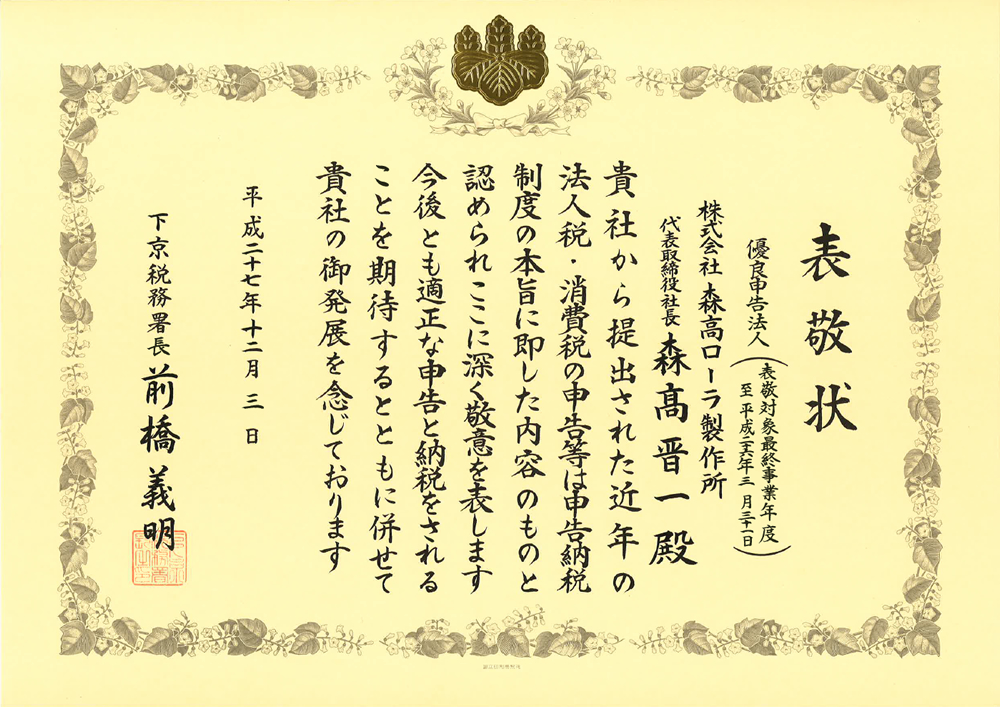 表敬状
優良申告法人
（表敬対象最終事業年度
至 平成二六年三月三十一日）
株式会社 森高ローラ製作所
代表取締役社長 森髙晋一殿
貴社から提出された近年の
法人税・消費税の申告等は申告納税
制度の本旨に即した内容のものと
認められここに深く敬意を表します
今後とも適正な申告と納税をされる
ことを期待するとともに併せて
貴社の御発展を念じております
平成二十七年十二月三日
下京税務署長 前橋義明